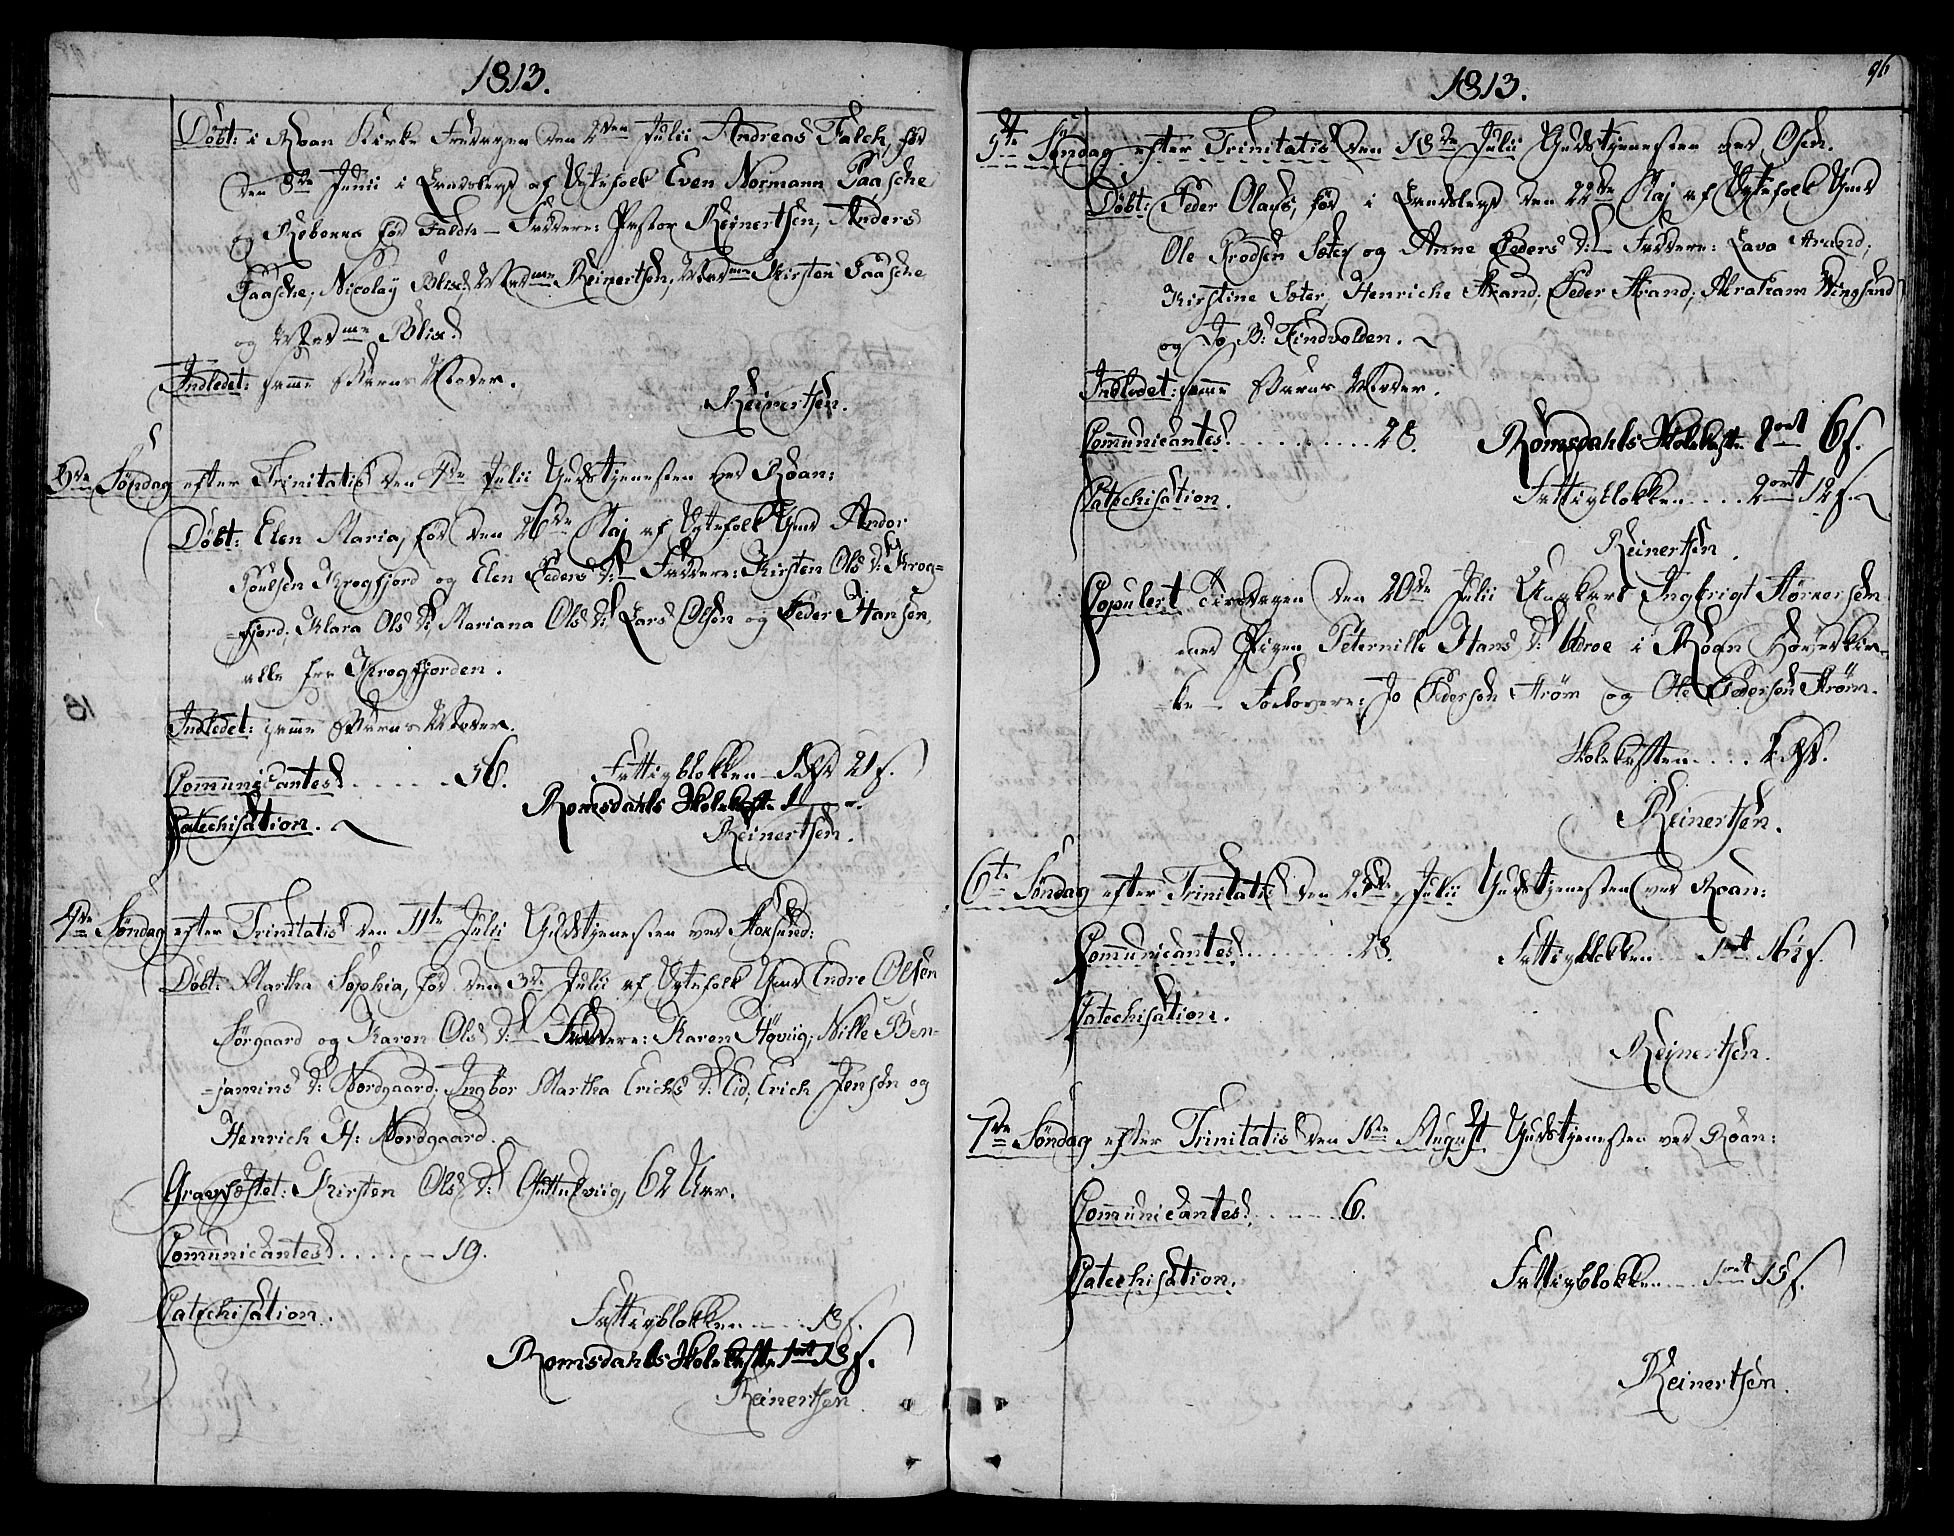 1813.
Döbt: i Roan Kirke Fredagen den 2den Julii Andreas Falch, föd
den 8de Junii i Landsbyd af Ægtefolk Even Normann Paasche
og Rebekka föd Falch – Faddere: Pastor Reinertsen, Anders
Paasche, Nicolaÿ Blix, Madme Reinertsen, Madme Kirsten Paasche
og Madme Blix.
Indledet: samme Barns Moder.
Reinertsen.
3de Söndag efter Trinitatis den 4de Julii Gudstjenesten ved Roan:
Döbt: Elen Maria, föd den 26de Maj af Ægtefolk Gmd Andor
Poulsen Krogfjord og Elen Peders D: – Faddere: Kirsten Ols D: Krog=
=fjord, Klara Ols D: Mariana Ols D: Lars Olsen og Peder Hansen,
alle fra Krogfjorden.
Indledet: samme Barns Moder.
Communicantes . . . . . 56. Fattigblokken – 1 21 s.
Romsdahls Skolekasse 1
Catechisation.
Reinertsen.
4de Söndag efter Trinitatis den 11te Julii Gudstjenesten ved Stoksund:
Döbt: Martha Sophia, föd den 3de Julii af Ægtefolk Gmd Endre Olsen
Sörgaard og Karen Ols D: – Faddere: Karen Höviig, Nille Ben-
=jamins D: Nordgaard, Ingbor Martha Erichs D: Eid, Erich Jensen og
Henrich H: Nordgaard.
Gravfæstet: Kirsten Ols D: 62 Aar.
Communicantes . . . . . 19.
Catechisation.
Fattigblokken . . . . 18 s.
Romsdahls Skolekasse 1ort 18 s.
Reinertsen
1813.
96
5te Söndag efter Trinitatis den 18de Julii Gudstjenesten ved Osen.
Döbt: Peder Olaus, föd i den 22de Maj af Ægtefolk Gmd
Ole Frodsen Sæter og Anne Peders D: – Faddere: Lava Strand,
Kirstine Sæter, Henriche Strand, Peder Strand, Abraham Vingsand
og Jo B: Findvolden.
Indledet: samme Barns Moder.
Communicantes . . . . . . . . 28. Romsdahls Skolekasse 2ort 6 s.
Catechisation. Fattigblokken . . . . 2ort 12 s.
Reinertsen.
Copulert Tirsdagen den 20de Julii Ungkarl Ingbrigt Störkersen
med Pigen Peternille Hans D: i Roan Hovedkir-
=ke – Forlovere: Jo Pedersen Ström og Ole Pedersen Ström.
Skolekassen . . . . 2
Reinertsen.
6te Söndag efter Trinitatis den 25de Julii Gudstjenesten ved Roan:
Communicantes . . . . . . . 28. Fattigblokken 1ort 16½ s.
Catechisation.
Reinertsen.
7de Söndag efter Trinitatis den 1ste August Gudstjenesten ved Roan:
Communicantes . . . . . 6.
Catechisation. Fattigblokken . . . 1ort 15 s.
Reinertsen.